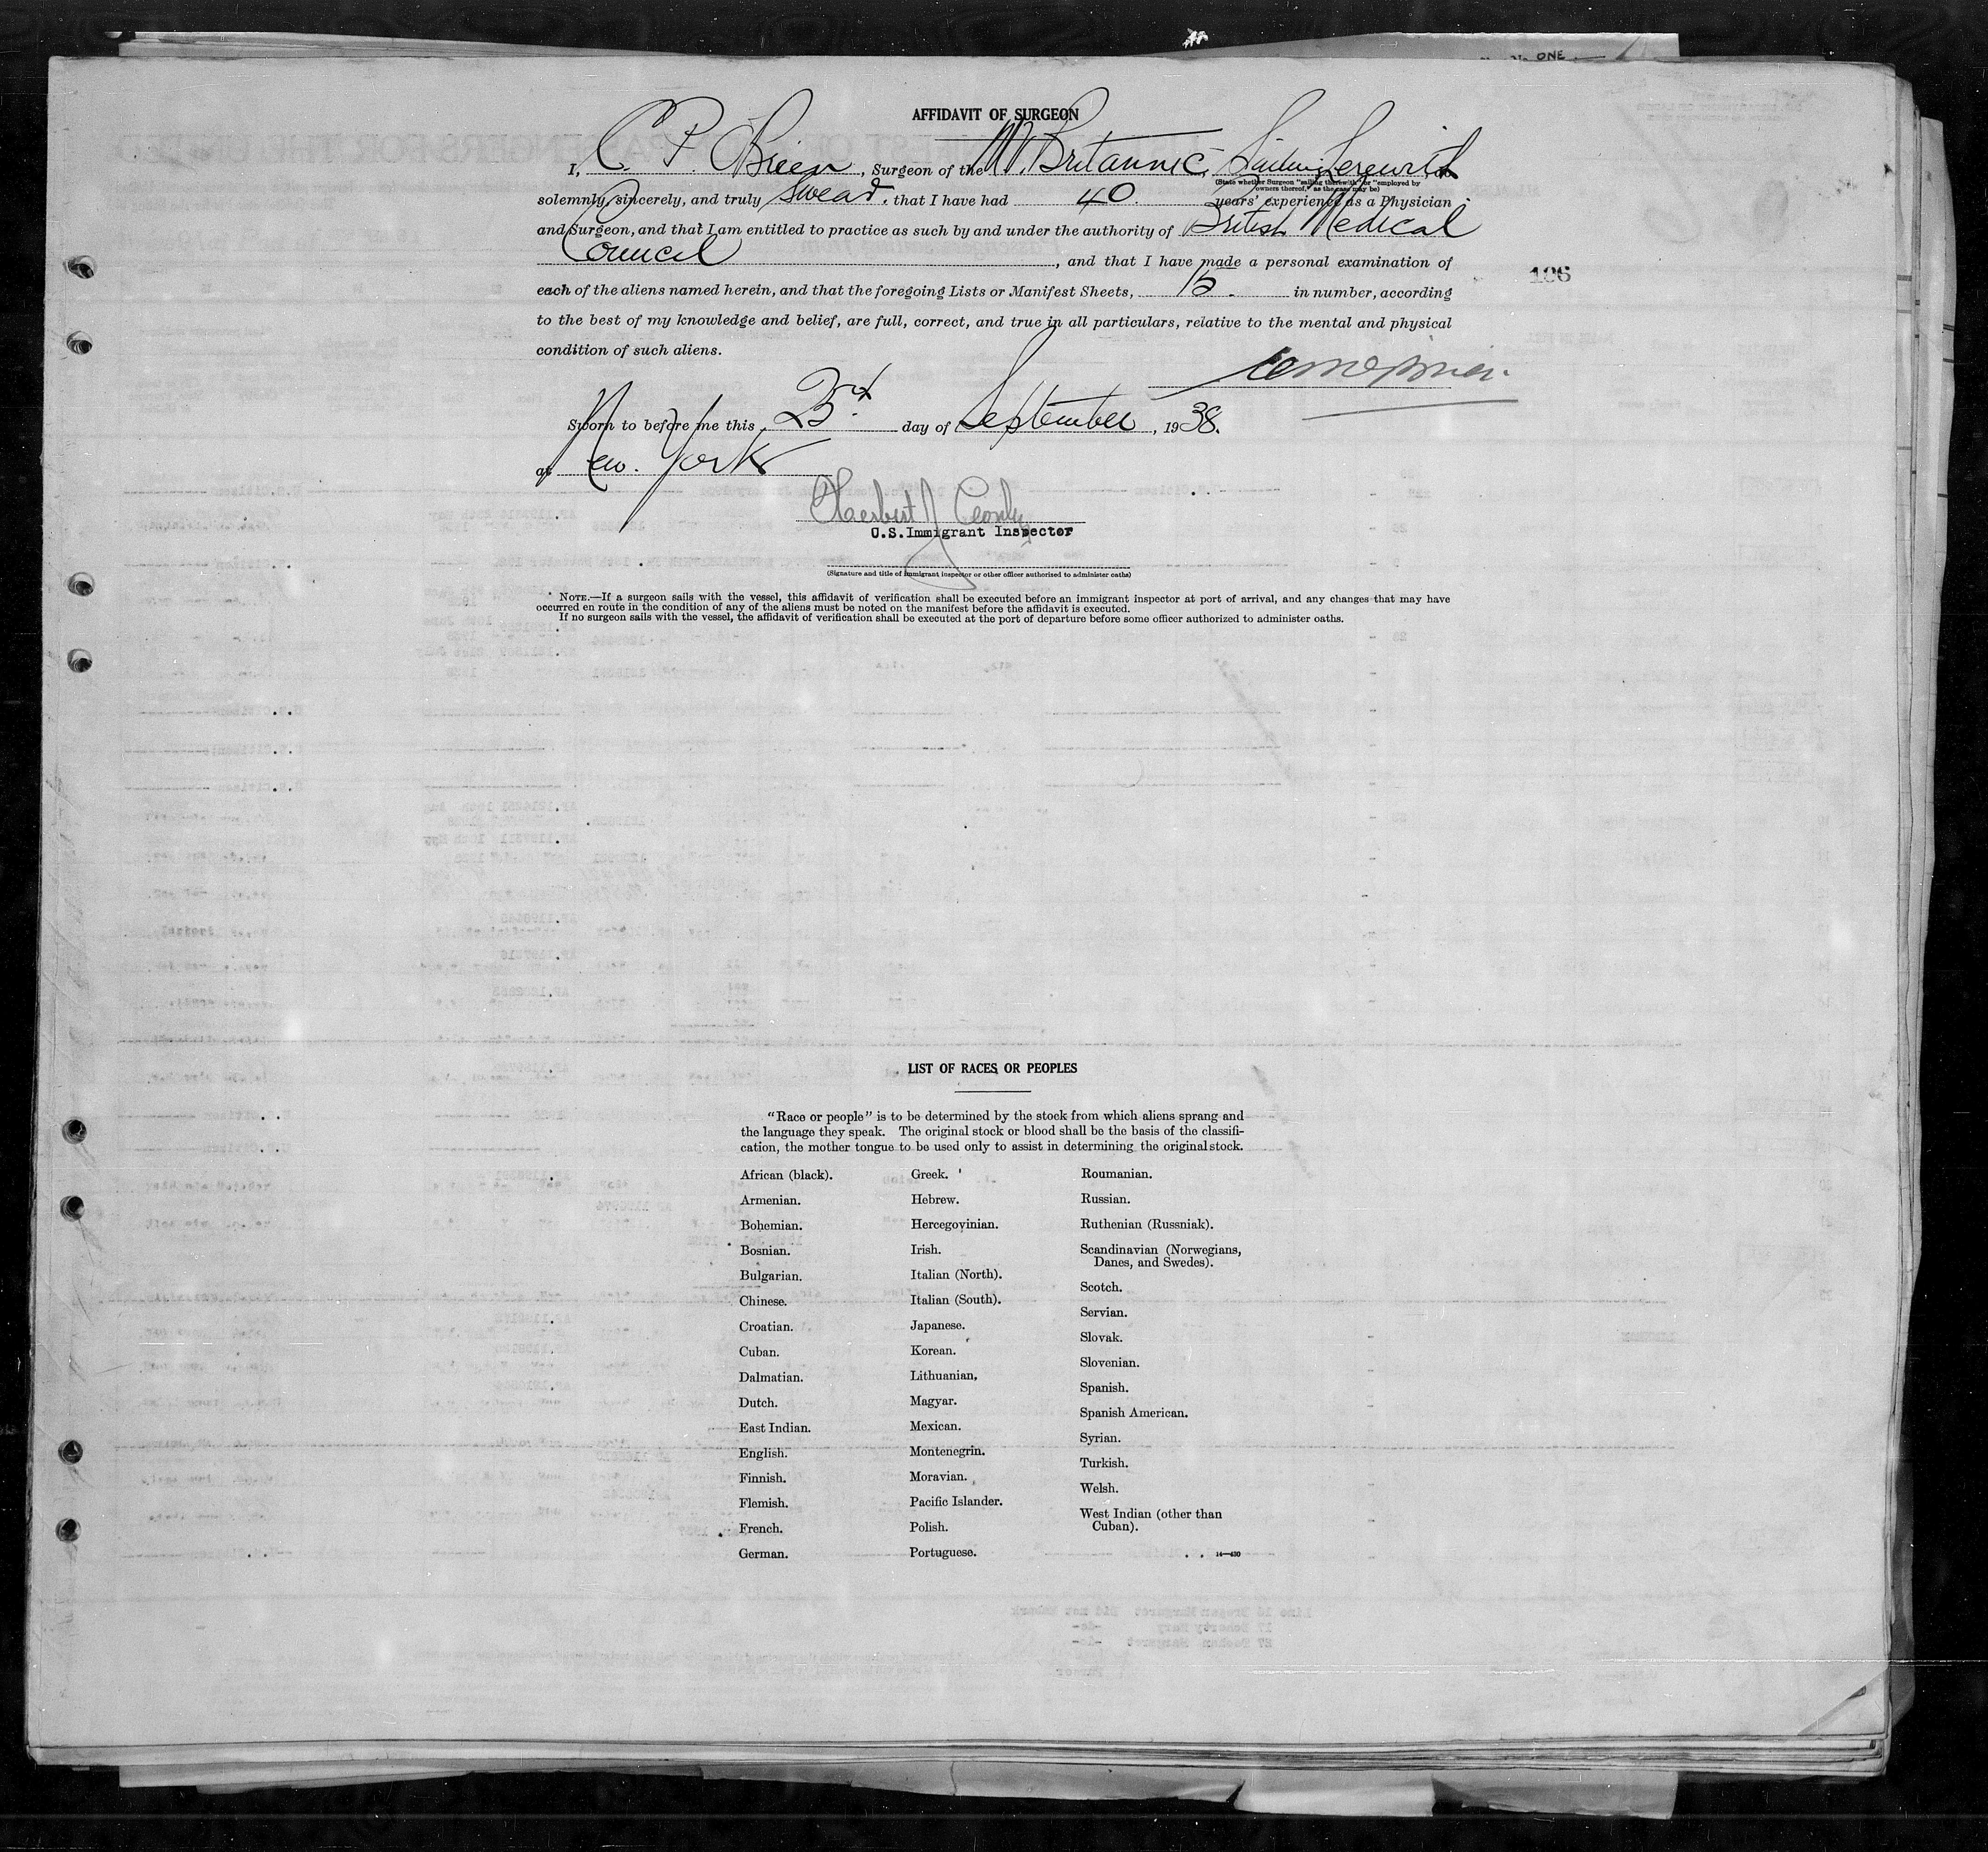 No. ONE
AFFIDAVIT OF SURGEON
I, C. P. O'Brien, Surgeon of the M.V. Britannic, Sailing Therewith
(State whether Surgeon "sailing therewith" or "employed by owners thereof," as the case may be)
solemnly, sincerely, and truly Swear, that I have had 40. years' experience as a Physician
and Surgeon, and that I am entitled to practice as such by and under the authority of British Medical
Council, and that I have made a personal examination of
106
each of the aliens named herein, and that the foregoing Lists or Manifest Sheets, 15. in number, according
to the best of my knowledge and belief, are full, correct, and true in all particulars, relative to the mental and physical
condition of such aliens.
Sworn to before me this day of September, 1938.
at New York
Herbert J
U.S.Immigrant Inspector
(Signature and title of immigrant inspector or other officer authorized to administer oaths)
NOTE.—If a surgeon sails with the vessel, this affidavit of verification shall be executed before an immigrant inspector at port of arrival, and any changes that may have
occurred en route in the condition of any of the aliens must be noted on the manifest before the affidavit is executed.
If no surgeon sails with the vessel, the affidavit of verification shall be executed at the port of departure before some officer authorized to administer oaths.
LIST OF RACES OR PEOPLES
"Race or people" is to be determined by the stock from which aliens sprang and
the language they speak. The original stock or blood shall be the basis of the classifi-
cation, the mother tongue to be used only to assist in determining the original stock.
African (black).
Armenian.
Bohemian.
Bosnian.
Bulgarian.
Chinese.
Croatian.
Cuban.
Dalmatian.
Dutch.
East Indian.
English.
Finnish.
Flemish.
French.
German.
Greek.
Hebrew.
Hercegovinian.
Irish.
Italian (North).
Italian (South).
Japanese.
Korean.
Lithuanian.
Magyar.
Mexican.
Montenegrin.
Moravian.
Pacific Islander.
Polish.
Portuguese.
Roumanian.
Russian.
Ruthenian (Russniak).
Scandinavian (Norwegians,
Danes, and Swedes).
Scotch.
Servian.
Slovak.
Slovenian.
Spanish.
Spanish American.
Syrian.
Turkish.
Welsh.
West Indian (other than
Cuban).
14—430